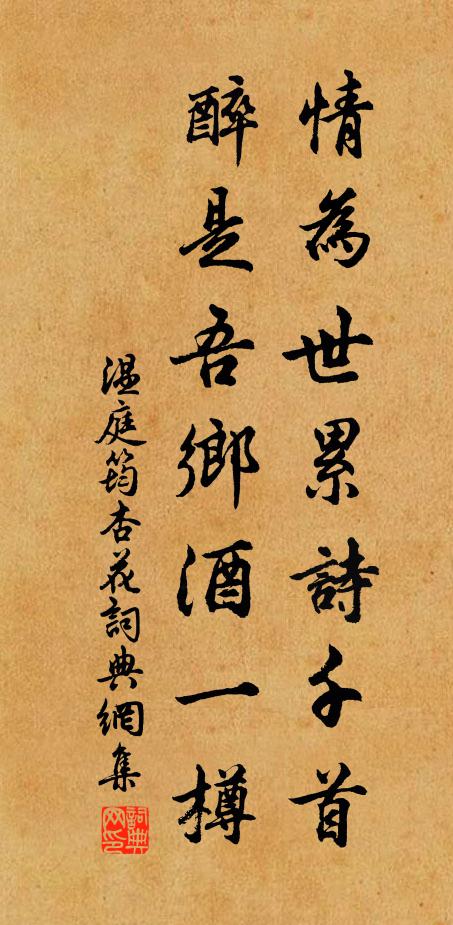 情為世累詩千首
醉是吾鄉酒一樽
温庭筠杏花詞典網集
詞典網印